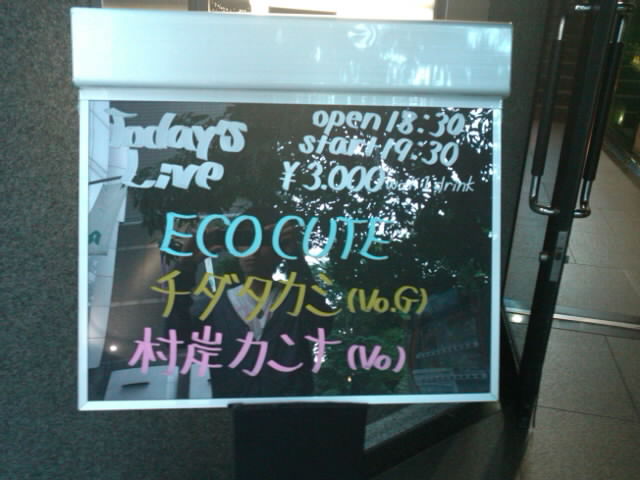 Today's Live
open 18:30
start 19:30
¥3.000 drink
ECO CUTE
チダタカシ (Vo.G)
村岸カンナ (Vo)